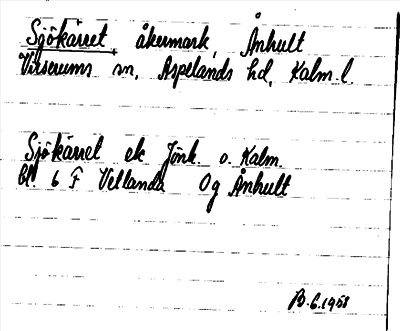 Sjökärret, åkermark, Ånhult
Virserums sn, Aspelands hd, Kalm. l.
Sjökärret ek Jönk. o. Kalm.
Bl. 6 F Vetlanda Og Ånhult
B.G.1958